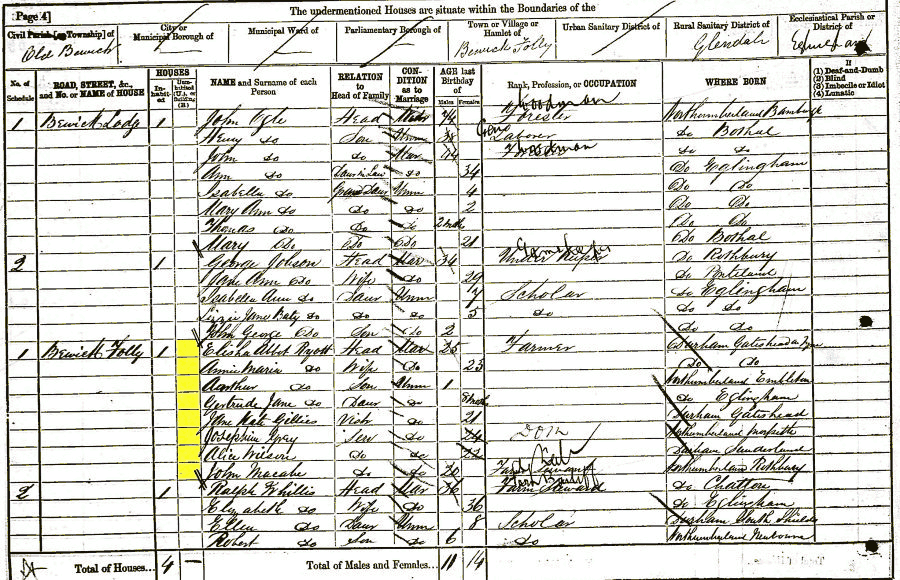 Page 4]
The undermentioned Houses are situate within the Boundaries of the
Civil Parish [or Township] of
City or Municipal Borough of
Municipal Ward of
Parliamentary Borough of
Town or Village or Hamlet of
Urban Sanitary District of
Rural Sanitary District of
Ecclesiastical Parish or District of
Old Bewick
Bewick Folly
Glendale
No. of Schedule
ROAD, STREET, &c., and No. or NAME of HOUSE
HOUSES
Inhabited
NAME and Surname of each Person
RELATION to Head of Family
CONDITION as to Marriage
AGE last Birthday of
Males
Females
Rank, Profession, or OCCUPATION
WHERE BORN
If
(1) Deaf-and-Dumb
(2) Blind
(3) Imbecile or Idiot
(4) Lunatic
1 Bewick Lodg 1 John Ogle Head 74 Woodman Forester Northumberland
Henry Do Son Unm Laborer Do Bothal
John Do Do Mar Woodman Do Do
Ann Do Daur in Law Do 34 Do Eglingham
Isabella Do Grand Daur Unm 4 Do Do
Mary Ann Do Do Do 2 Do Do
Thomas Do Do Do 2 mths Do Do
Mary Do Do Do 21 Do Bothal
2 1 George Jobson Head Mar 34 Under Keeper Gamekeeper Do Rothbury
Jane Ann Do Wife Do 29 Do
Isabella Ann Do Daur Unm 7 Scholar Do Eglingham
Lizzie Jane Do Do Do 5 Do Do Do
John George Do Son Do 2 Do Do
1 Bewick Folly 1 Elisha Abbot Head Mar 25 Farmer Durham Gateshead on Tyne
Annie Maria Do Wife Do 23 Do Do
Arthur Do Son Unm 1 Northumberland Embleton
Gertrude Jane Do Daur Do 8 mths Do Eglingham
Jane Kate Gillies Visitr Do 21 Durham Gateshead
Josephin Gray Ser Do 24 Dom Northumberland Morpeth
Alice Wilson Do Do 22 Durham Sunderland
John Macabe Do Do 20 Farm Servant Northumberland Rothbury
2 1 Ralph Whillis Head Mar 36 Farm Steward Farm Bailiff Do Chatton
Elizabeth Do Wife Do 36 Do Eglingham
Ellen Do Daur Unm 8 Scholar Durham South Shields
Robert Do Son Do 6 Do Northumberland
Total of Houses... 4 –
Total of Males and Females... 11 14